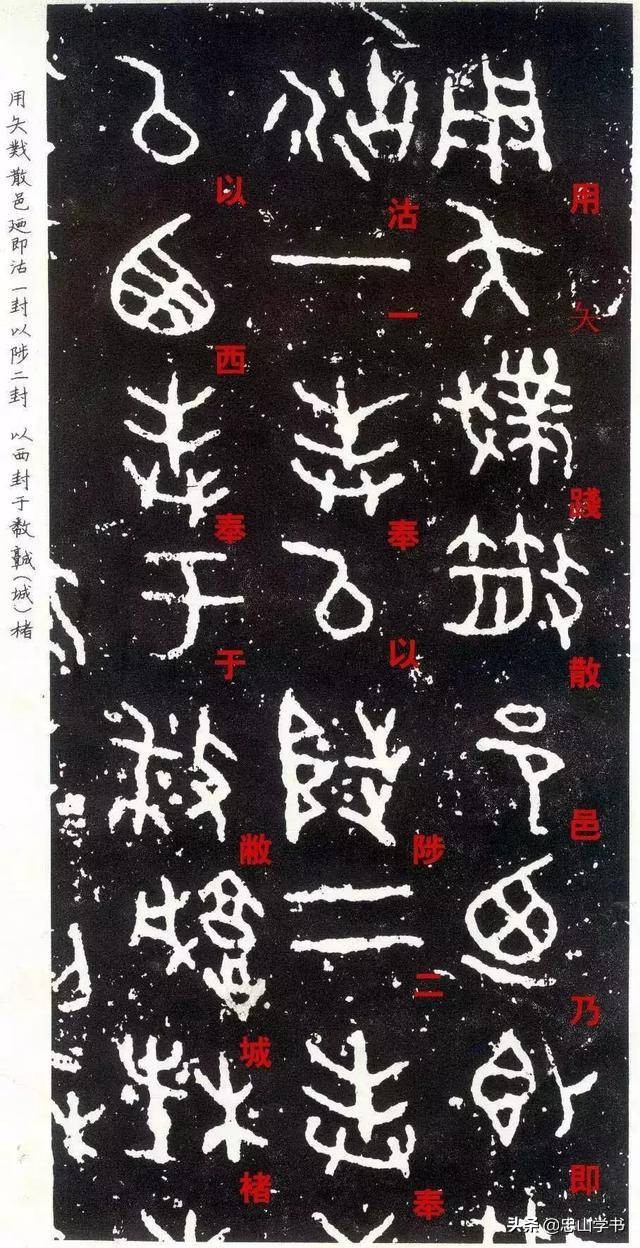 用矢踐散邑乃即
沽一奉以陟二奉
以西奉于敝城楮
用矢散邑廼即沽一封以陟二封 以西封于(城)楮
头条@忠山学书